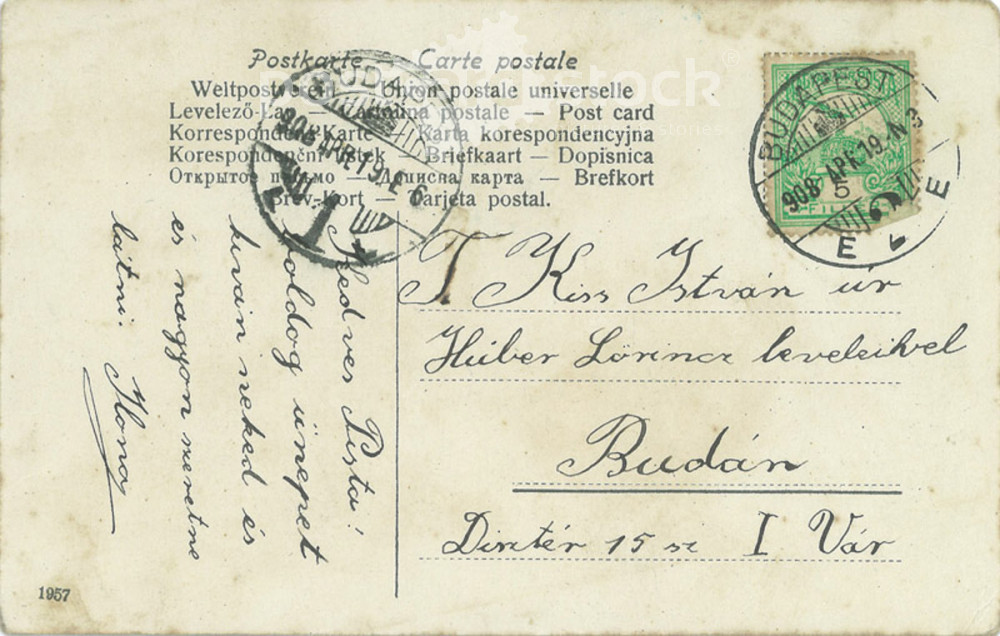 Postkarte Carte postale
Weltpostverein Union postale universelle
Levelező-Lap — Cartolina postale — Post card
Korrespondenz-Karte — Karta korespondencyjna
Korespondenční lístek — Briefkaart — Dopisnica
Открытое письмо — Дописна карта — Brefkort
Brev-Kort — Tarjeta postal.
BUDAPEST
908 APR. 19. E 6
BUDAPEST
908 APR. 19. N 3
5
FILL
E
E
T. Kiss István úr
Húber Lörincz leveleikvel
Budán
Disztér 15 sz I Vár
Kedves Pista!
boldog ünepet
kivan neked és
és nagyon szeretne
látni: Ilona
1957
stock